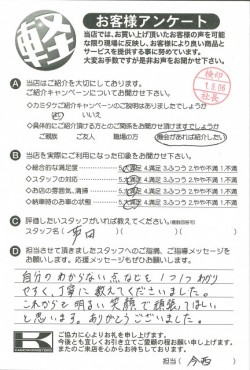 軽
お客様アンケート
当店では、お買い上げ頂いたお客様の声を可能
な限り現場に反映し、お客様により良い商品と
サービスを提供する事に努めています。
大変お手数ですが是非お声をお聞かせ下さい。
検印
社長
A 当店はご紹介を大切にしております。
ご紹介キャンペーンについてお聞かせ下さい。
◇カミタケご紹介キャンペーンのご説明はありましたでしょうか
はい いいえ
◇具体的にご紹介頂ける方とのご関係をお聞かせ頂けますでしょうか
ご親族 ご友人 職場の方 機会があれば紹介したい
B 当店を実際にご利用になった印象をお聞かせ下さい。
◇総合的な満足度 5.大満足 4.満足 3.ふつう 2.やや不満 1.不満
◇スタッフの対応 5.大満足 4.満足 3.ふつう 2.やや不満 1.不満
◇お店の雰囲気、清掃 5.大満足 4.満足 3.ふつう 2.やや不満 1.不満
◇納車時のお車の状態 5.大満足 4.満足 3.ふつう 2.やや不満 1.不満
C 評価したいスタッフがいれば教えてください。(複数回答可)
スタッフ名( 田 )
D 担当させて頂きましたスタッフへのご指摘、ご指導メッセージ
をお願いします。応援メッセージもお聞かせください。
自分のわからない点なども1つ1つわかり
やすく、丁寧に教えてくださいました。
これからも明るい笑顔で頑張ってほしい
と思います。ありがとうございました。
K
ご協力に心よりお礼を申し上げます。
今後とも宜しくお引き立てご愛顧の程お願い申し上げます。
またのご来店を心からお待ちしております。
担当( 今西 )